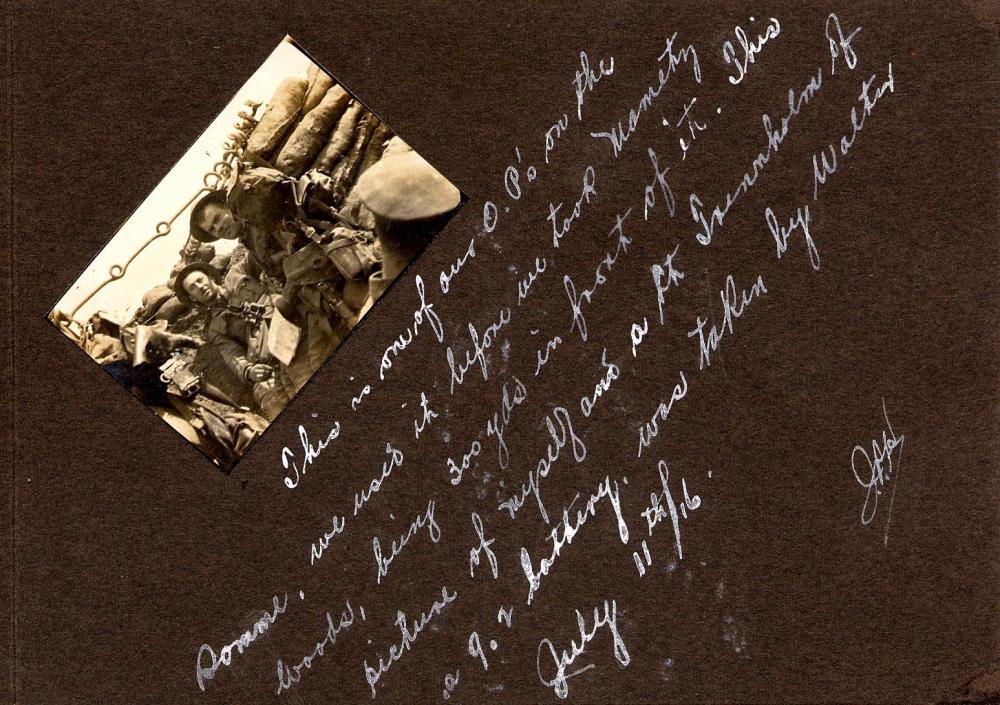 This is one of our O.P's on the
Somme, we used it before we took Mametz
Woods, being 300 yds in front of it. This
picture of myself and a Lt Trennholm of
a 9.2 battery, was taken by Walter
July 11th/16.